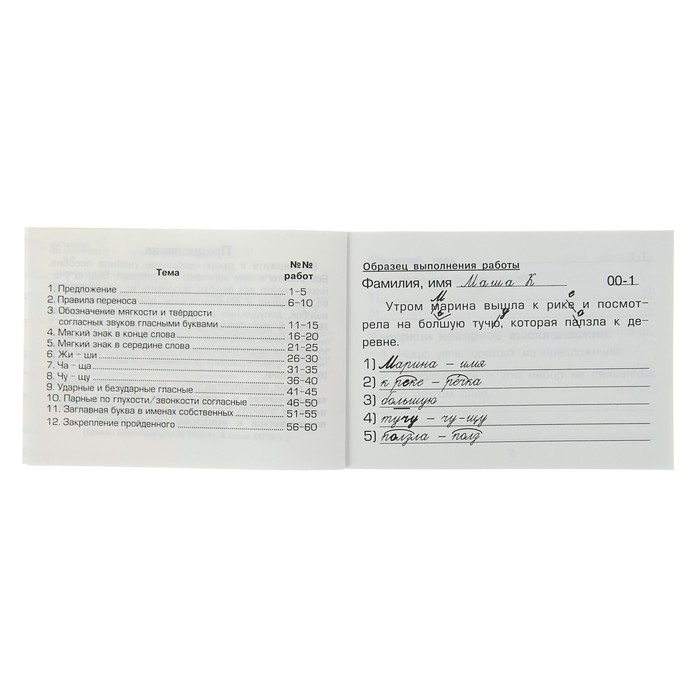 Тема
№№ работ
1. Предложение 1-5
2. Правила переноса 6-10
3. Обозначение мягкости и твёрдости
согласных звуков гласными буквами 11-15
4. Мягкий знак в конце слова 16-20
5. Мягкий знак в середине слова 21-25
6. Жи - ши 26-30
7. Ча - ща 31-35
8. Чу - щу 36-40
9. Ударные и безударные гласные 41-45
10. Парные по глухости/звонкости согласные 46-50
11. Заглавная буква в именах собственных 51-55
12. Закрепление пройденного 56-60
Образец выполнения работы
Фамилия, имя Маша К 00-1
М е
Утром марина вышла к рике и посмот-
ь у о
рела на болшую тучю, которая палзла к де-
ревне.
1) Марина - имя
2) к реке - речка
3) большую
4) тучу - чу-щу
5) ползла - полз